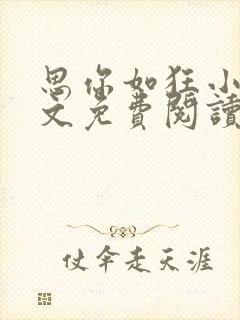 思你如狂小
文免費閱讀
仗伞走天涯